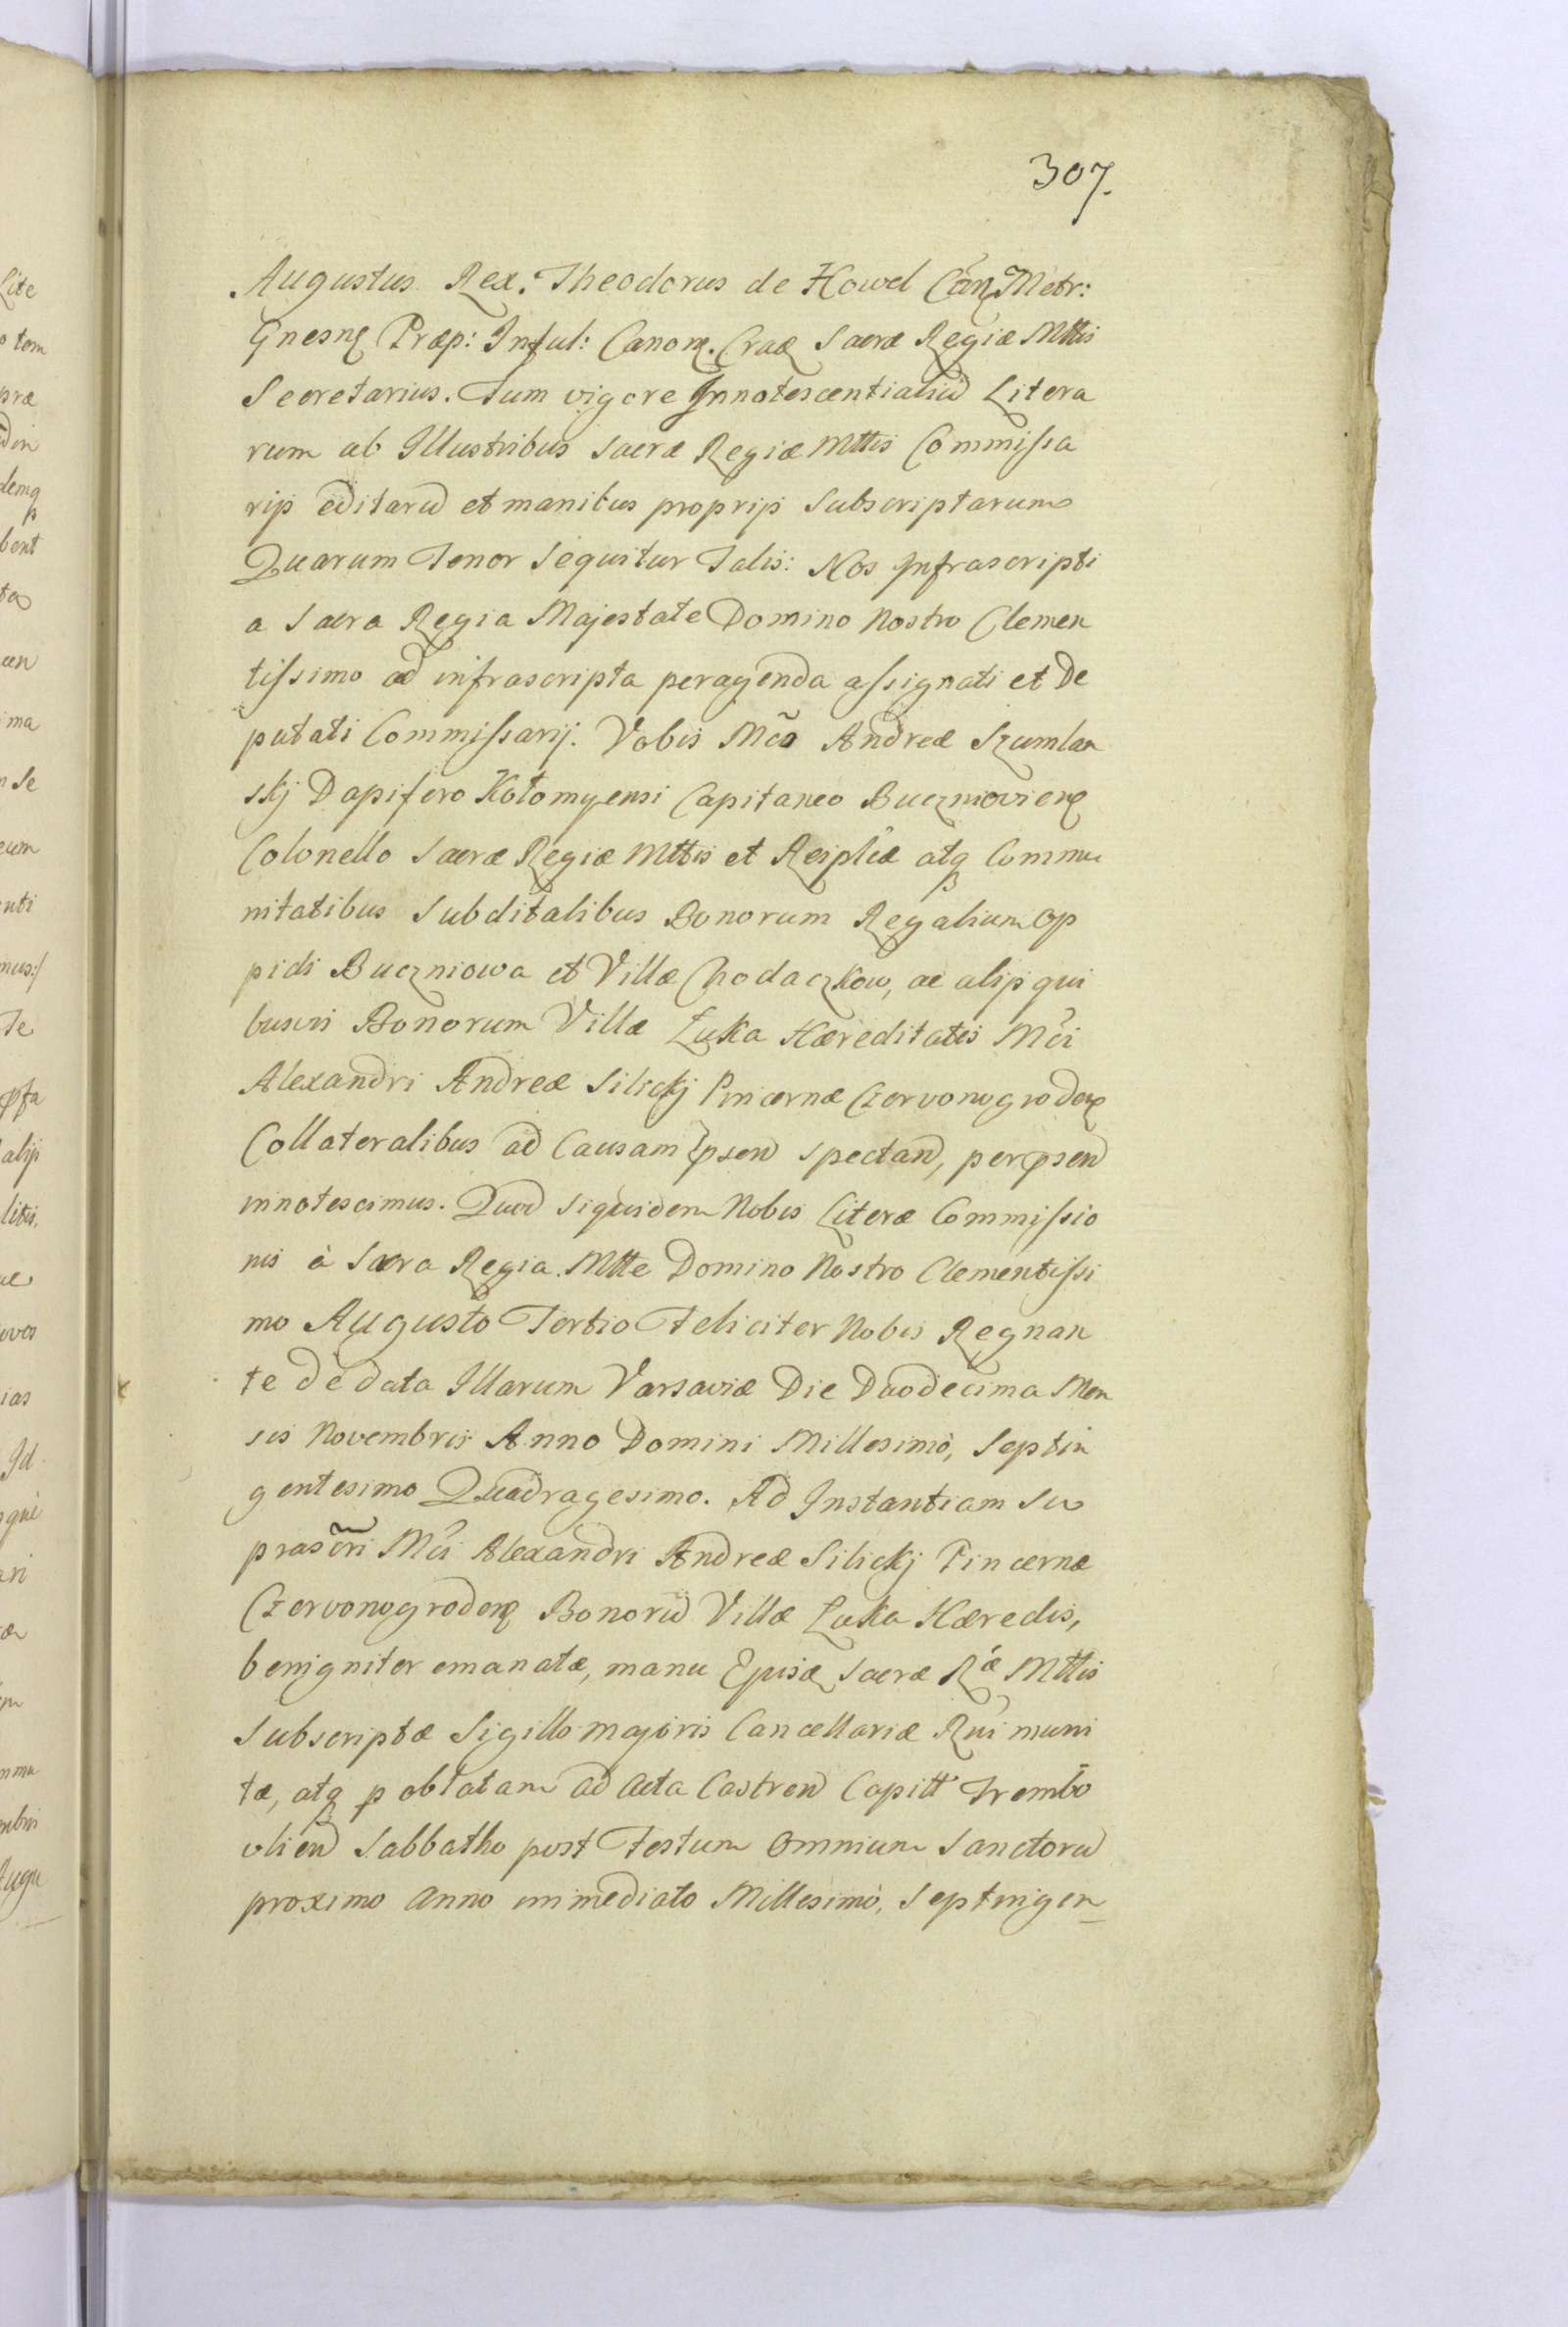 307.
Augustus Rex. Theodorus de Howel Can Metr:
Gnesn Præp: Inful: Canon. Crac Sacræ Regiæ Mttis
Secretarius. Tum vigore Innotescentialiu Litera
rum ab Illustribus Sacræ Regiæ Mttis Commissa
rijs editaru et manibus proprijs Subscriptarum
Quarum Tenor Sequitur Talis: Nos Infrascripti
a Sacra Regia Majestate Domino Nostro Clemen
tissimo ad infrascripta peragenda assignati et De
putati Commissarij. Vobis Mco Andreæ Szumlan
skj Dapifero Kołomyensi Capitaneo Buczniovien
Colonello Sacræ Regiæ Mttis et Reiplicæ atq Commu
nitatibus Subditalibus Bonorum Regalium Op
pidi Buczniowa et Villæ Chodaczkow, ac alijs qui
busvis Bonorum Villæ Łuka Hæreditatis Mci
Alexandri Andreæ Silickj Pincernæ Czervonogroden
Collateralibus ad Causam psen spectan, per psen
innotescimus. Quod siquidem Nobis Literæ Commissio
nis à Sacra Regia Mtte Domino Nostro Clementissi
mo Augusto Tertio Feliciter Nobis Regnan
te de data Illarum Varsaviæ Die Duodecima Men
sis Novembris Anno Domini Millesimo, Septin
gentesimo Quadragesimo. Ad Instantiam Su
prascri Mci Alexandri Andreæ Silickj Pincernæ
Czervonogroden Bonoru Villæ Łuka Hæredis,
benigniter emanatæ, manu Ejusd Sacræ Ræ Mttis
Subscriptæ Sigillo majoris Cancellariæ Rni muni
tæ, atq p oblatam ad Acta Castren Capitt Trembo
vlien Sabbatho post Festum Omnium Sanctoru
proximo Anno immediato Millesimo, Septingen